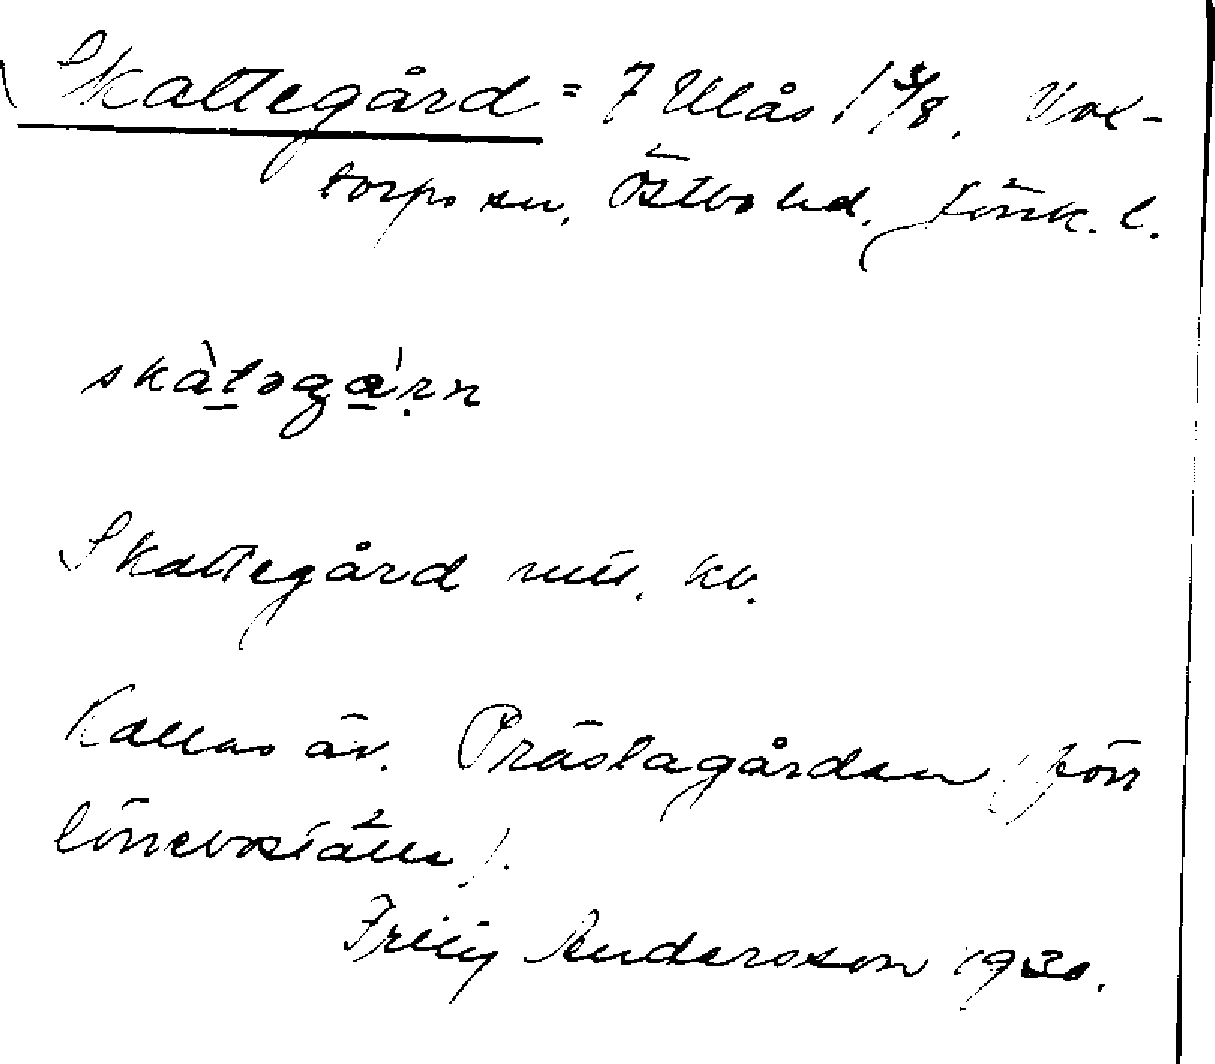 Skattegård = 7 Ulås 1 3/8, Voxtorps sn, Östbo hd, Jönk. l.
skàtəgá̱rn
Skattegård mtl. kb.
Kallas äv. Prästagården (förr
löneboställe).
Frilig Andersson 1930.